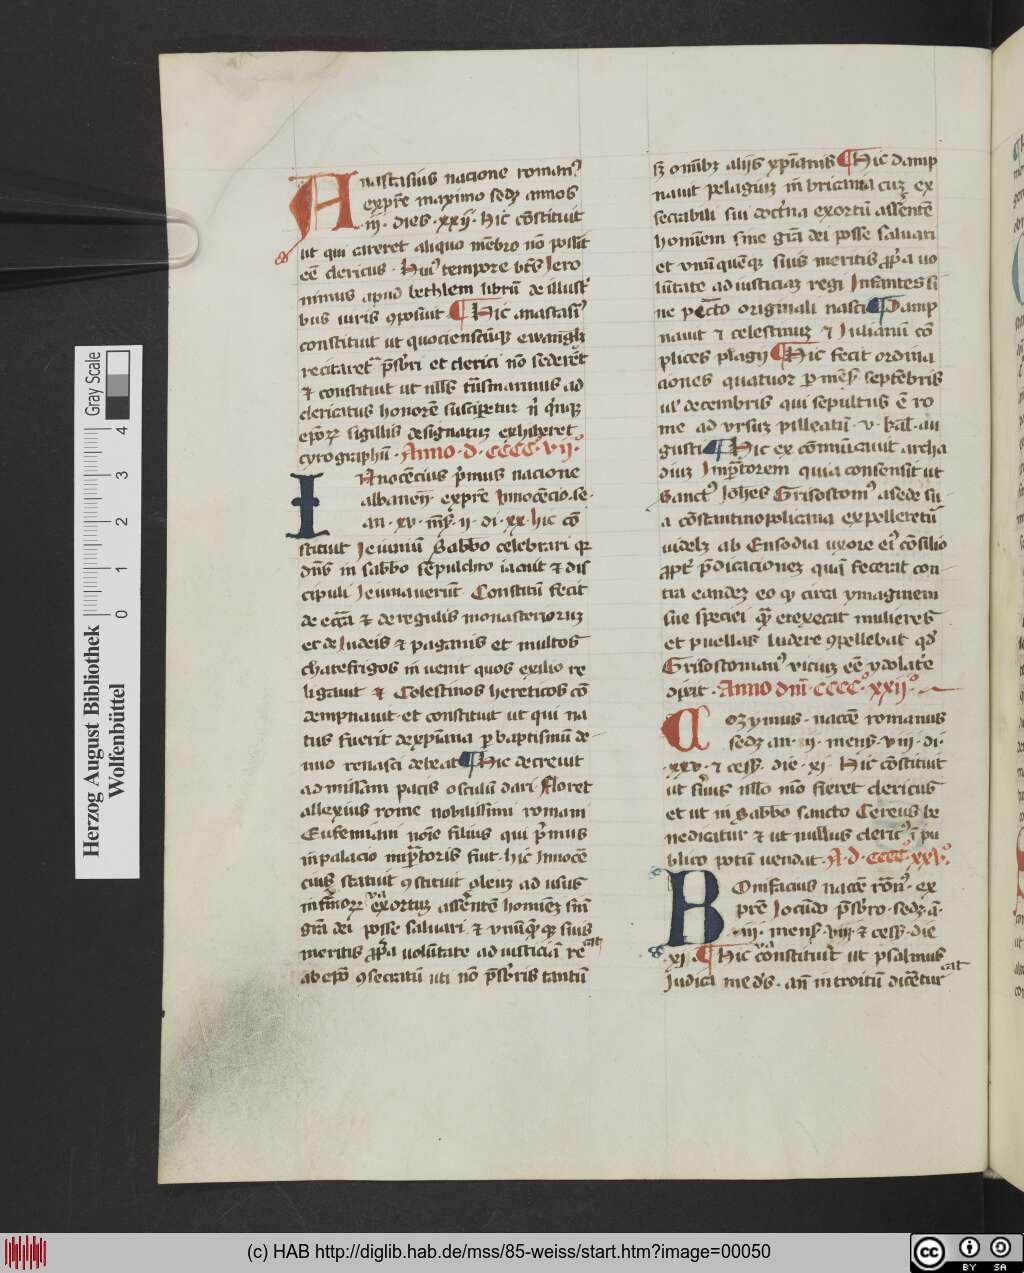 Anastasius nacione roman⁹
ex pr̄e maximo sedꝫ annos
·iij· dies ·xxij· hic cōstituit
ut qui careret aliquo mēbro nō possit
eē clericus · Hui⁹ tempore bt̄s Jero
nimus apud bethlem librū de illust᷒
bus uiris ꝯposuit · ¶ Hic anastasi⁹
constituit ut quocienscūqꝫ ewangl̄ꝫ
recitaret᷒ p̄sbri et clerici nō sederēt
⁊ constituit ut nll̄s tn̄smarinus ad
clericatus honorē susciperetur n̄ qͥnqꝫ
ep̄oꝝ sigillis designatuꝫ exhiberet
cyrographū · Anno · d · cccc⁰ · vij⁰ ·
Innocēcius pͥmus nacione
albanen̄ ex pr̄e Innocēcio · se ·
an · xv · mēs̄ · ii · di · xx · hic cō
stituit Jeiuniū sabbo celebrari qꝛ
dn̄s in sabbo sēpulchro iacuit ⁊ dis
cipuli Jeiunauerūt Constitutū fecit
de ecc̄ia ⁊ de regulis monasterioruꝫ
et de Judeis ⁊ paganis et multos
chatefrigos in uenit quos exilio re
ligauit ⁊ Celestinos hereticos cō
dempnauit · et constituit ut qui na
tus fuerit de xp̄iana ꝑ baptismū de
nuo renasci debeat ¶ Hic decreuit
ad missam pacis osculū dari Floret
allexius rome nobilissimi romani
Eufemiani noīe filius qui pͥmus
in palacio imp̄atoris fuit · hic Innocē
cius statuit ꝯstituit oleuꝫ ad usus
infirmoꝝ exortuꝫ asserentē homineꝫ sin̄
grā dei posse saluari ⁊ vnūqͣꝫqꝫ suis
meritis ꝓpͥa uolūtate ad iusticiā re
ab ep̄o ꝯsecratū uti nō p̄sbris tantū
sꝫ omībꝫ alijs xp̄ianis ¶ Hic damp
nauit pelagiuꝫ in bricania cuꝫ ex
secrabili sui doctͥna exortū asserentē
hominem sine grā dei posse saluari
et vnū quēqꝫ suis meritis ꝓpͥa uo
lūtate ad iusticiaꝫ regi Infantes si
ne pctō originali nasci ¶ Damp
nauit ⁊ celestinuꝫ ⁊ Julianū cō
plices plagij ¶ Hic fecit ordina
ciones quatuor ꝑ mēs̄ septēbris
uel decembris qui sepultus ē ro
me ad vrsuꝫ pilleatū · v · kal̄ · au
gusti ¶ Hic ex cōmūicauit archa
diuꝫ Imp̄torem quia consensit ut
sanct⁹ Joh̄es Grisostom⁹ a sede su
a cōstantinopolitana expelleretur᷒
uidelꝫ ab Eusodia uxore ei⁹ cōsilio
ꝓpt᷒ p̄dicacioneꝫ quā fecerat con
tra eandeꝫ eo ꝙ circa ymaginem
sue speciei qͣm erexerat mulieres
et puellas ludere ꝯpellebat qd᷒
Grisostoman⁹ vicuꝫ eē ydolatͥe
dixit · Anno dn̄i · cccc⁰ · xxij⁰ ·
Cozymus · nacōe romanus
sedꝫ an · ii · mens̄ · viii · di ·
· xxv · ⁊ cess̄ · die · xi · Hic cōstituit
ut s̄uus nll̄o mō fieret clericus
et ut in sabbo sancto Cereus be
nedicatur ⁊ ut nullus cleric⁹ ī pu
blico potū uendat · A · d · cccc⁰ · xxv⁰ ·
Bonifacius nacōe rōn⁹ · ex
pr̄e Jocūdo p̄sbr̄o · sedꝫ ā ·
· iij · mens̄ · viij · ⁊ cess̄ · die
· xj · ¶ Hic cōnstituit ut psalmus
Judica me d᷒s · an̄ introitū dicētur
(c) HAB http://diglib.hab.de/mss/85-weiss/start.htm?image=00050
Herzog August Bibliothek
Wolfenbüttel
Gray Scale
0 1 2 3 4
cc BY SA